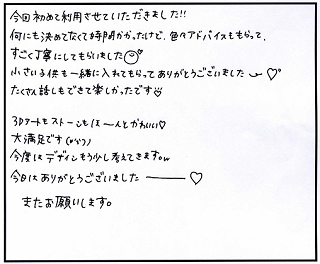 今回初めて利用させていただきました!!
何にも決めてなくて時間かかったけど、色々アドバイスももらって、
すごく丁寧にしてもらいました
小さい子供も一緒に入れてもらってありがとうございました〜♡
たくさん話しもできて楽しかったです
3Dアートもストーンもほーんとかわいい♡
大満足です
今度はデザインもう少し考えてきますw
今日はありがとうございました ―――♡
またお願いします。